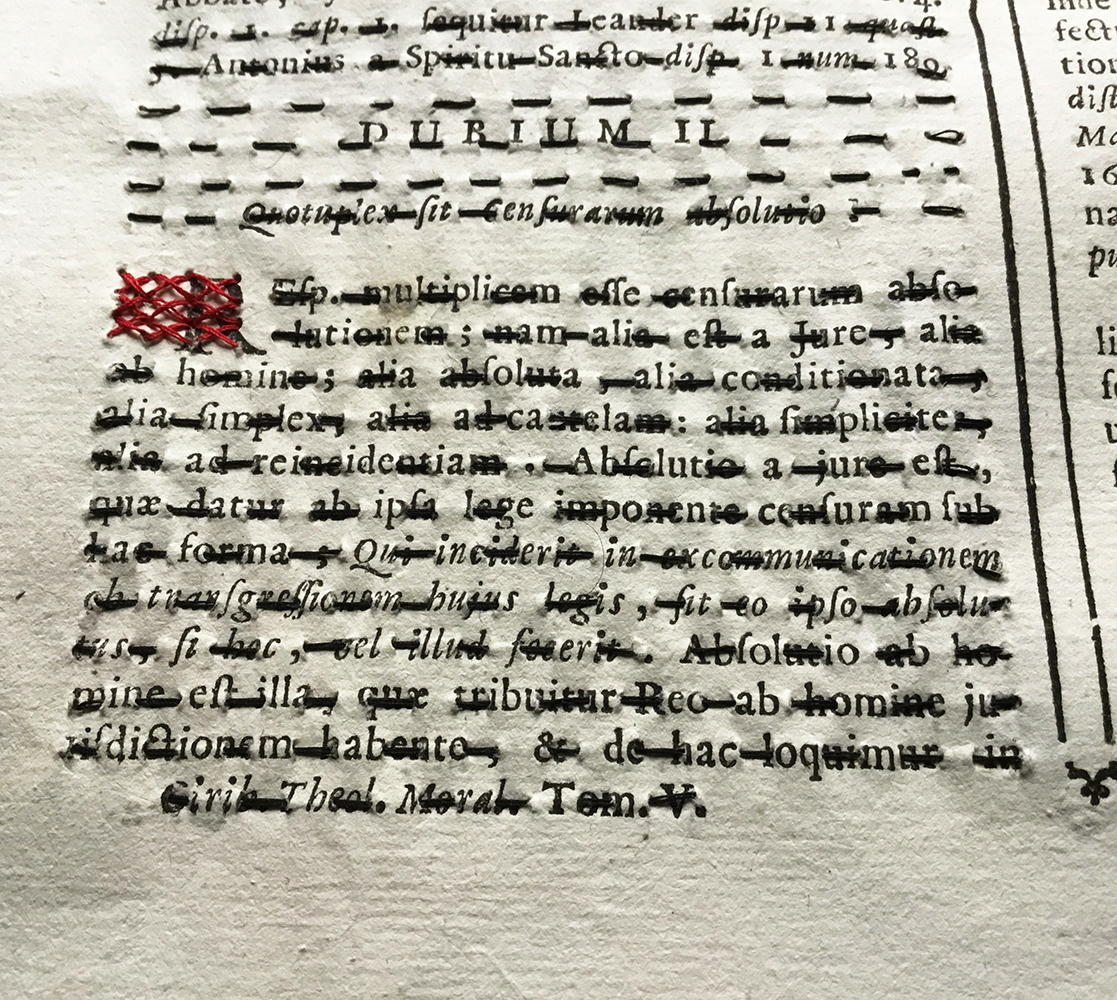 disp. 1. cap. 1. ſequitur Leander diſp. 11 quæſt.
Antonius a Spiritu Sancto diſp. 1 num. 180.
DUBIUM II.
Quotuplex ſit Cenſurarum abſolutio?
Reſp. multiplicem eſſe cenſurarum abſo-
lutionem; nam alia eſt a Jure, alia
ab homine; alia abſoluta, alia conditionata,
alia ſimplex, alia ad cautelam: alia ſimpliciter,
alia ad reincidentiam. Abſolutio a jure eſt,
quæ datur ab ipſa lege imponente cenſuram ſub
hac forma, Qui inciderit in excommunicationem
ob tranſgreſſionem hujus legis, ſit eo ipſo abſolu-
tus, ſi hoc, vel illud fecerit. Abſolutio ab ho-
mine eſt illa, quæ tribuitur Reo ab homine ju-
riſdictionem habente, & de hac loquimur in
Girib. Theol. Moral. Tom. V.
fect
tion
diſt